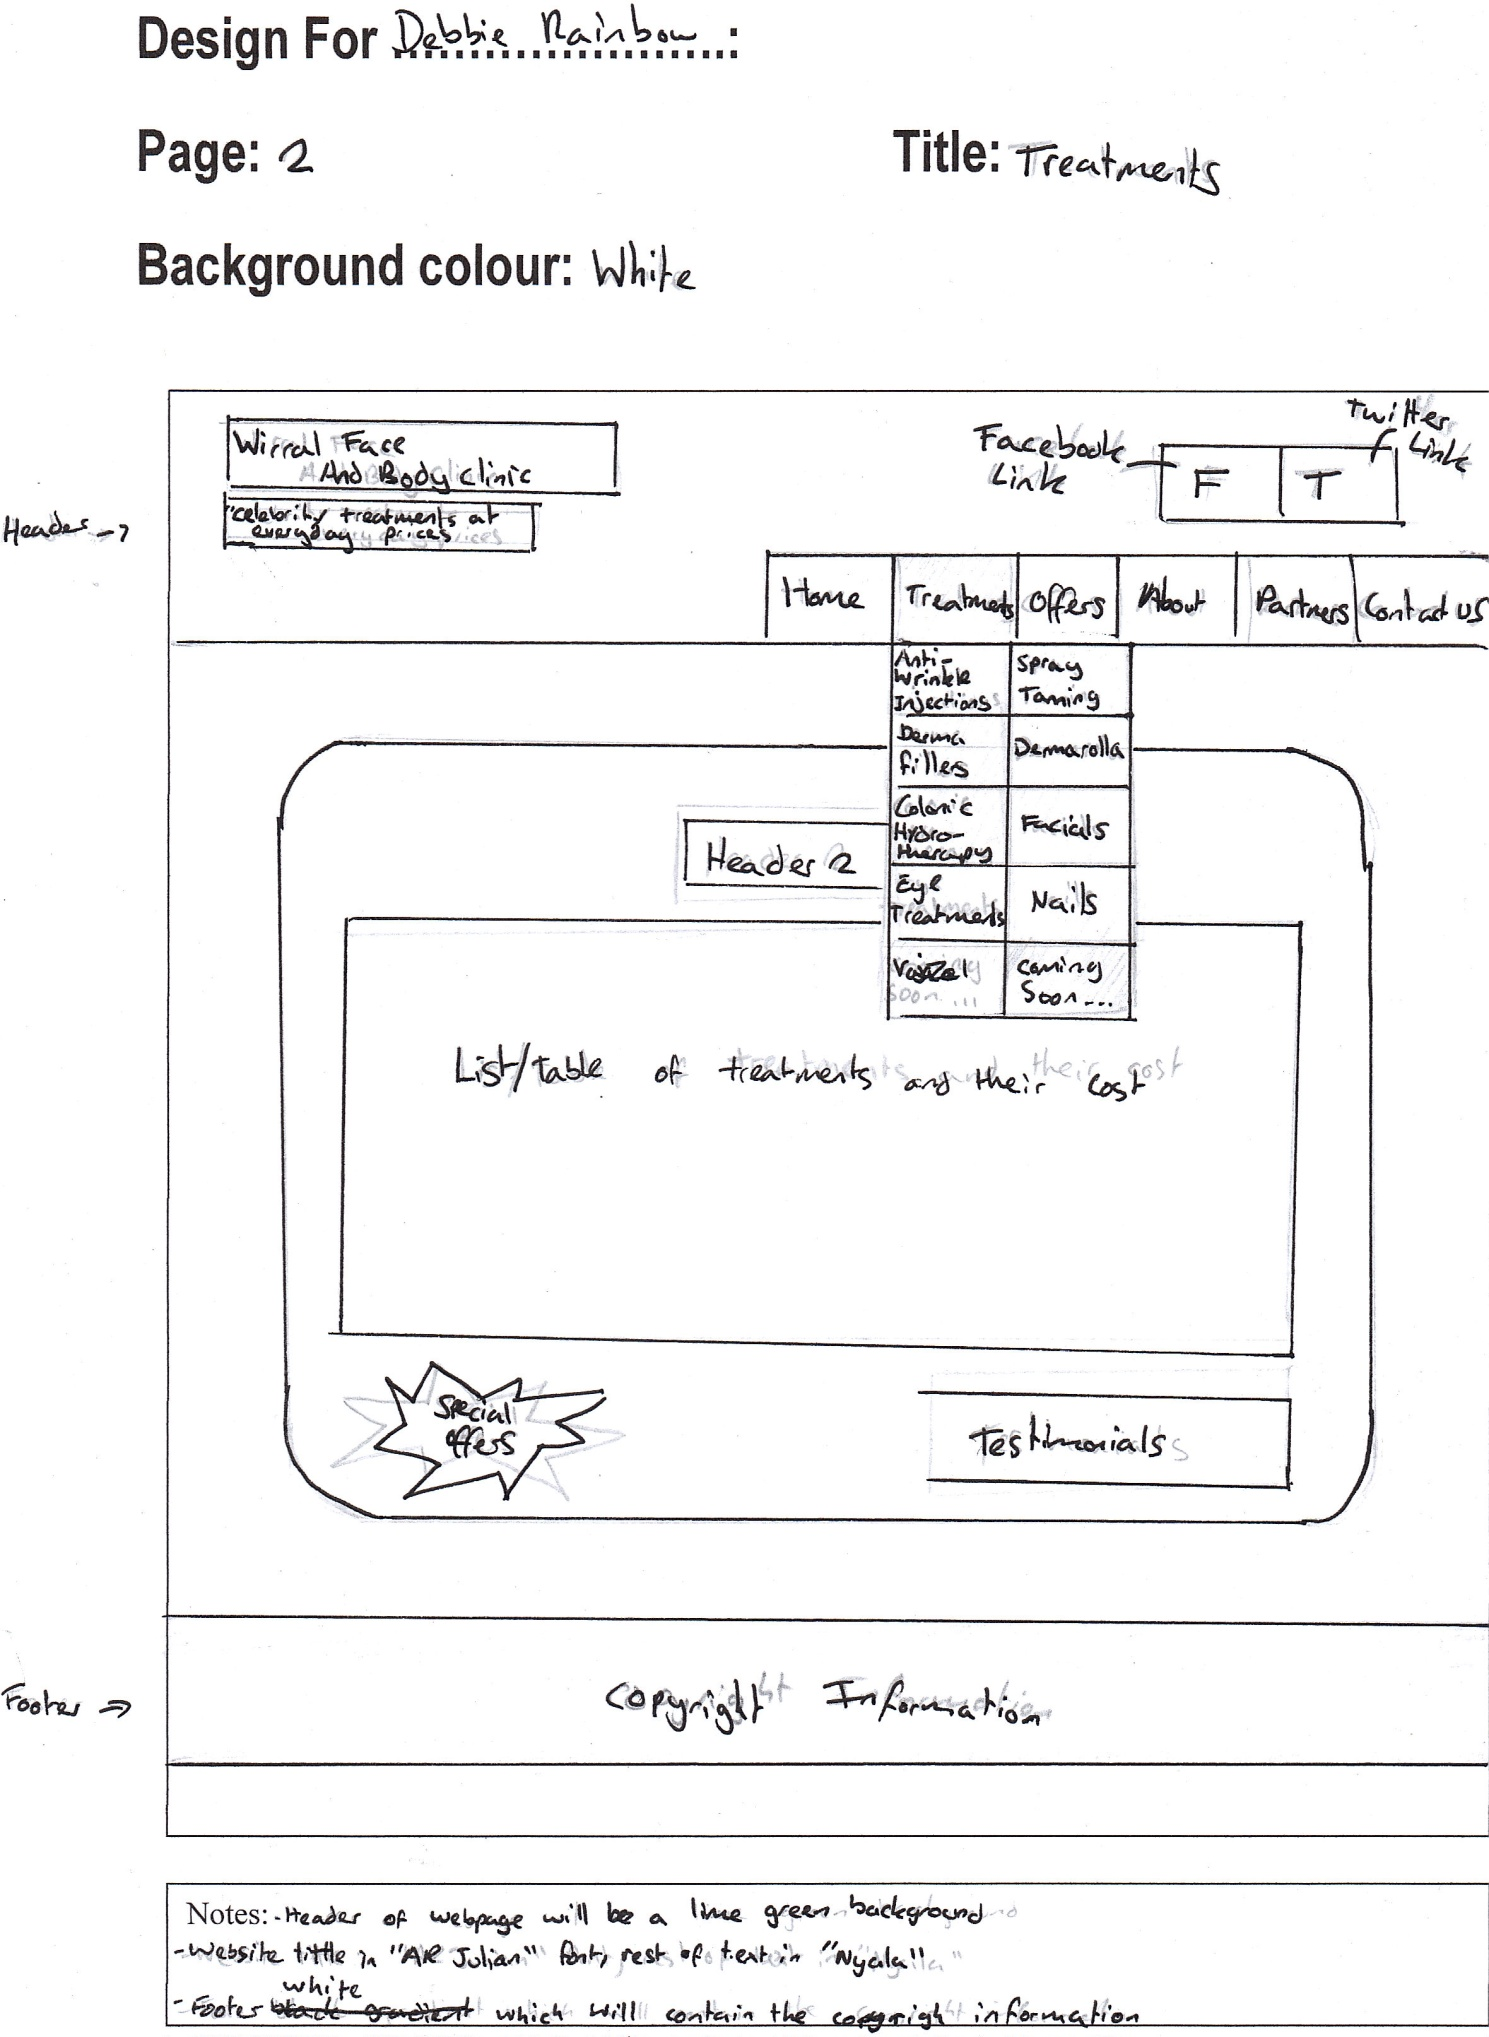 Design For Debbie Rainbow:
Page: 2
Title: Treatments
Background colour: White
Header →
Wirral Face
And Body clinic
"celebrity treatments at
everyday prices
Facebook
Link
Twitter
Link
F T
Home Treatments Offers About Partners Contact us
Anti-
Wrinkle
Injections
Spray
Taning
Derma
fillers
Demarolla
Colonic
Hydro-
therapy
Facials
Eye
Treatments
Nails
Coming
Soon...
Header 2
List/table of treatments and their cost
Special
offers
Testimonials
Footer ⇒
Copyright Information
Notes: - Header of webpage will be a lime green background
- Website tittle in "AR Julian" font, rest of text in "Nyala"
white
- Footer black gradient which will contain the copyrigh information